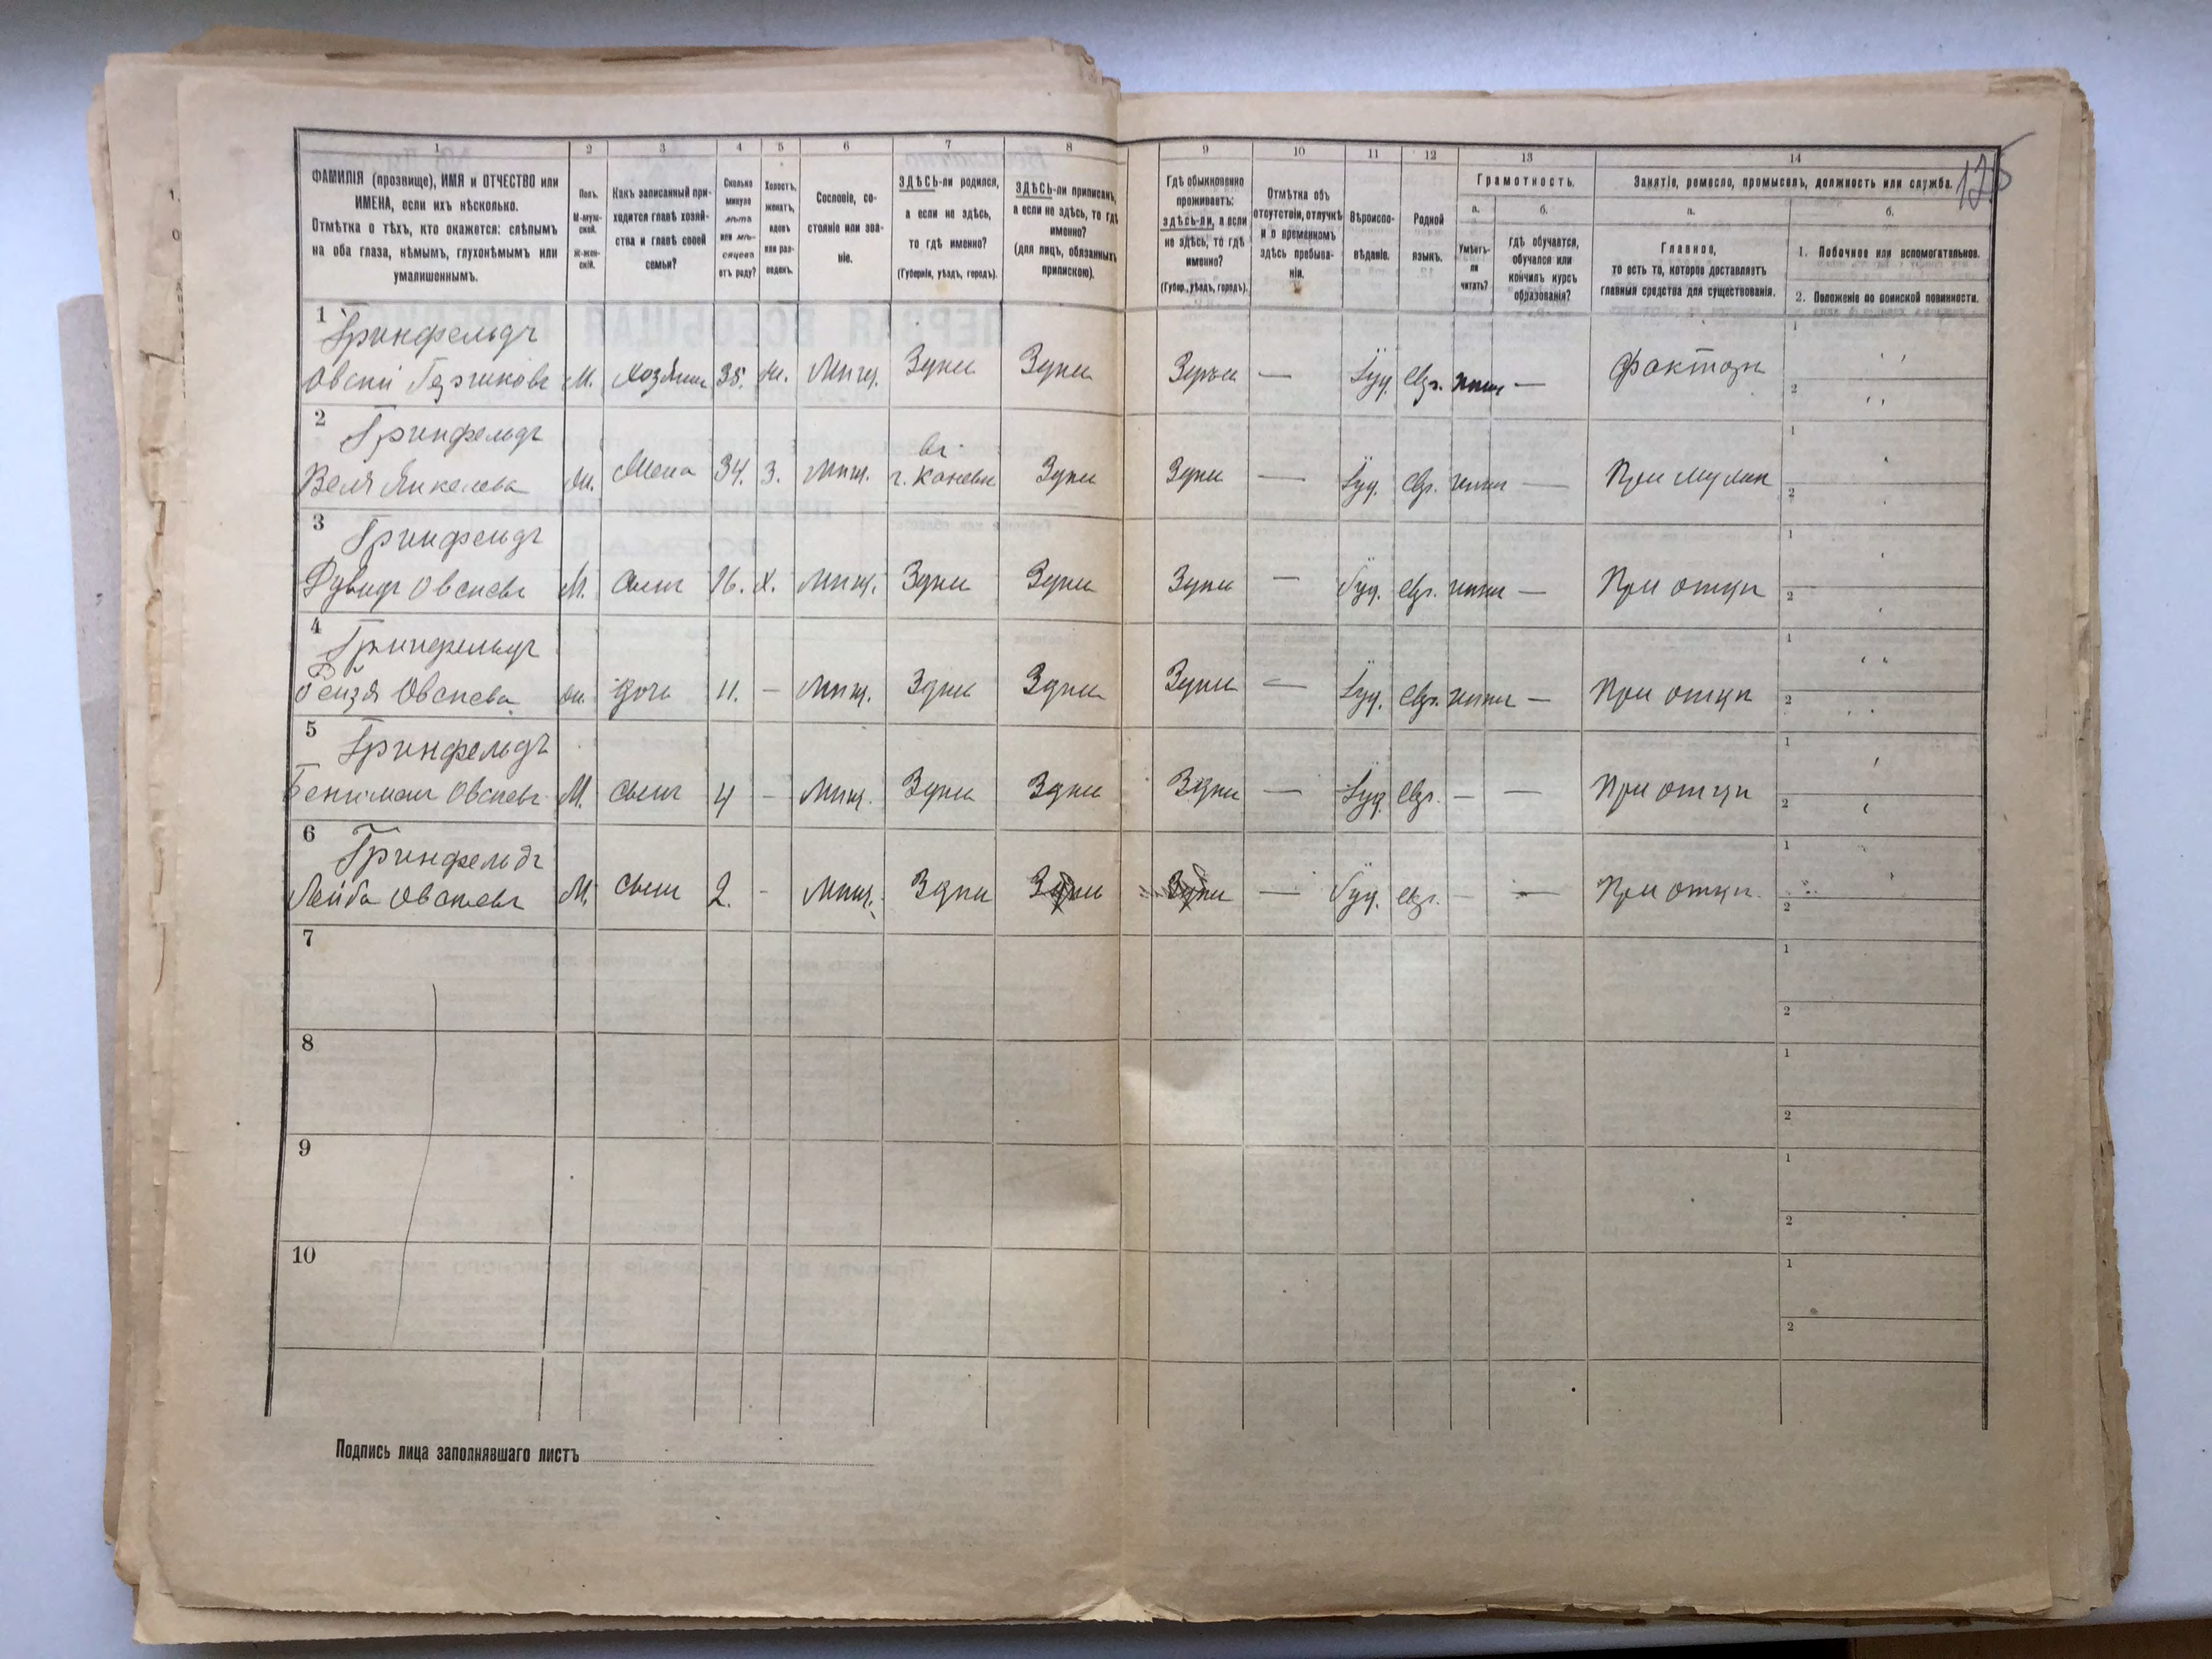 125
1 2 3 4 5 6 7 8 9 10 11 12 13 14
ФАМИЛІЯ (прозвище), ИМЯ и ОТЧЕСТВО или
ИМЕНА, если ихъ нѣсколько.
Отмѣтка о тѣхъ, кто окажется: слѣпымъ
на оба глаза, нѣмымъ, глухонѣмымъ или
умалишеннымъ.
Полъ.
М-муж-
ской.
Ж-жен-
скій.
Какъ записанный при-
ходится главѣ хозяй-
ства и главѣ своей
семьи?
Сколько
минуло
лѣтъ
или мѣ-
сяцевъ
отъ роду?
Холостъ,
женатъ,
вдовъ
или раз-
веденъ.
Сословіе, со-
стояніе или зва-
ніе.
ЗДѢСЬ-ли родился,
а если не здѣсь,
то гдѣ именно?
(Губернія, уѣздъ, городъ).
ЗДѢСЬ-ли приписанъ,
а если не здѣсь, то гдѣ
именно?
(для лицъ, обязанныхъ
припискою).
Гдѣ обыкновенно
проживаетъ:
здѣсь-ли, а если
не здѣсь, то гдѣ
именно?
(Губер., уѣздъ, городъ).
Отмѣтка объ
отсутствіи, отлучкѣ
и о временномъ
здѣсь пребыва-
ніи.
Вѣроиспо-
вѣданіе.
Родной
языкъ.
Грамотность.
а.
Умѣетъ-
ли
читать?
б.
гдѣ обучается,
обучался или
кончилъ курсъ
образованія?
Занятіе, ремесло, промыселъ, должность или служба.
а.
Главное,
то есть то, которое доставляетъ
главныя средства для существованія.
б.
1. Побочное или вспомогательное.
2. Положеніе по воинской повинности.
1 Гринфельдъ
Овсій М. хозяинъ 38. ж. Мѣщ. Здѣсь Здѣсь Здѣсь — Іуд. Евр. — Факторъ
2 Гринфельдъ
Веля Янкелева ж. Жена 34. З. Мѣщ. въ г. Каневѣ Здѣсь Здѣсь — Іуд. Евр. — При мужѣ
3 Гринфельдъ
Овсіевъ М. Сынъ 16. Х. Мѣщ. Здѣсь Здѣсь Здѣсь — Іуд. Евр. — При отцѣ
4 Гринфельдъ
Овсіева ж. Дочь 11. – Мѣщ. Здѣсь Здѣсь Здѣсь — Іуд. Евр. — При отцѣ
5 Гринфельдъ
Овсіевъ М. Сынъ 4 – Мѣщ. Здѣсь Здѣсь Здѣсь — Іуд. Евр. — — При отцѣ
6 Гринфельдъ
Лейба Овсіевъ М. Сынъ 2. – Мѣщ. Здѣсь Здѣсь Здѣсь — Іуд. Евр. – — При отцѣ.
7
8
9
10
Подпись лица заполнявшаго листъ